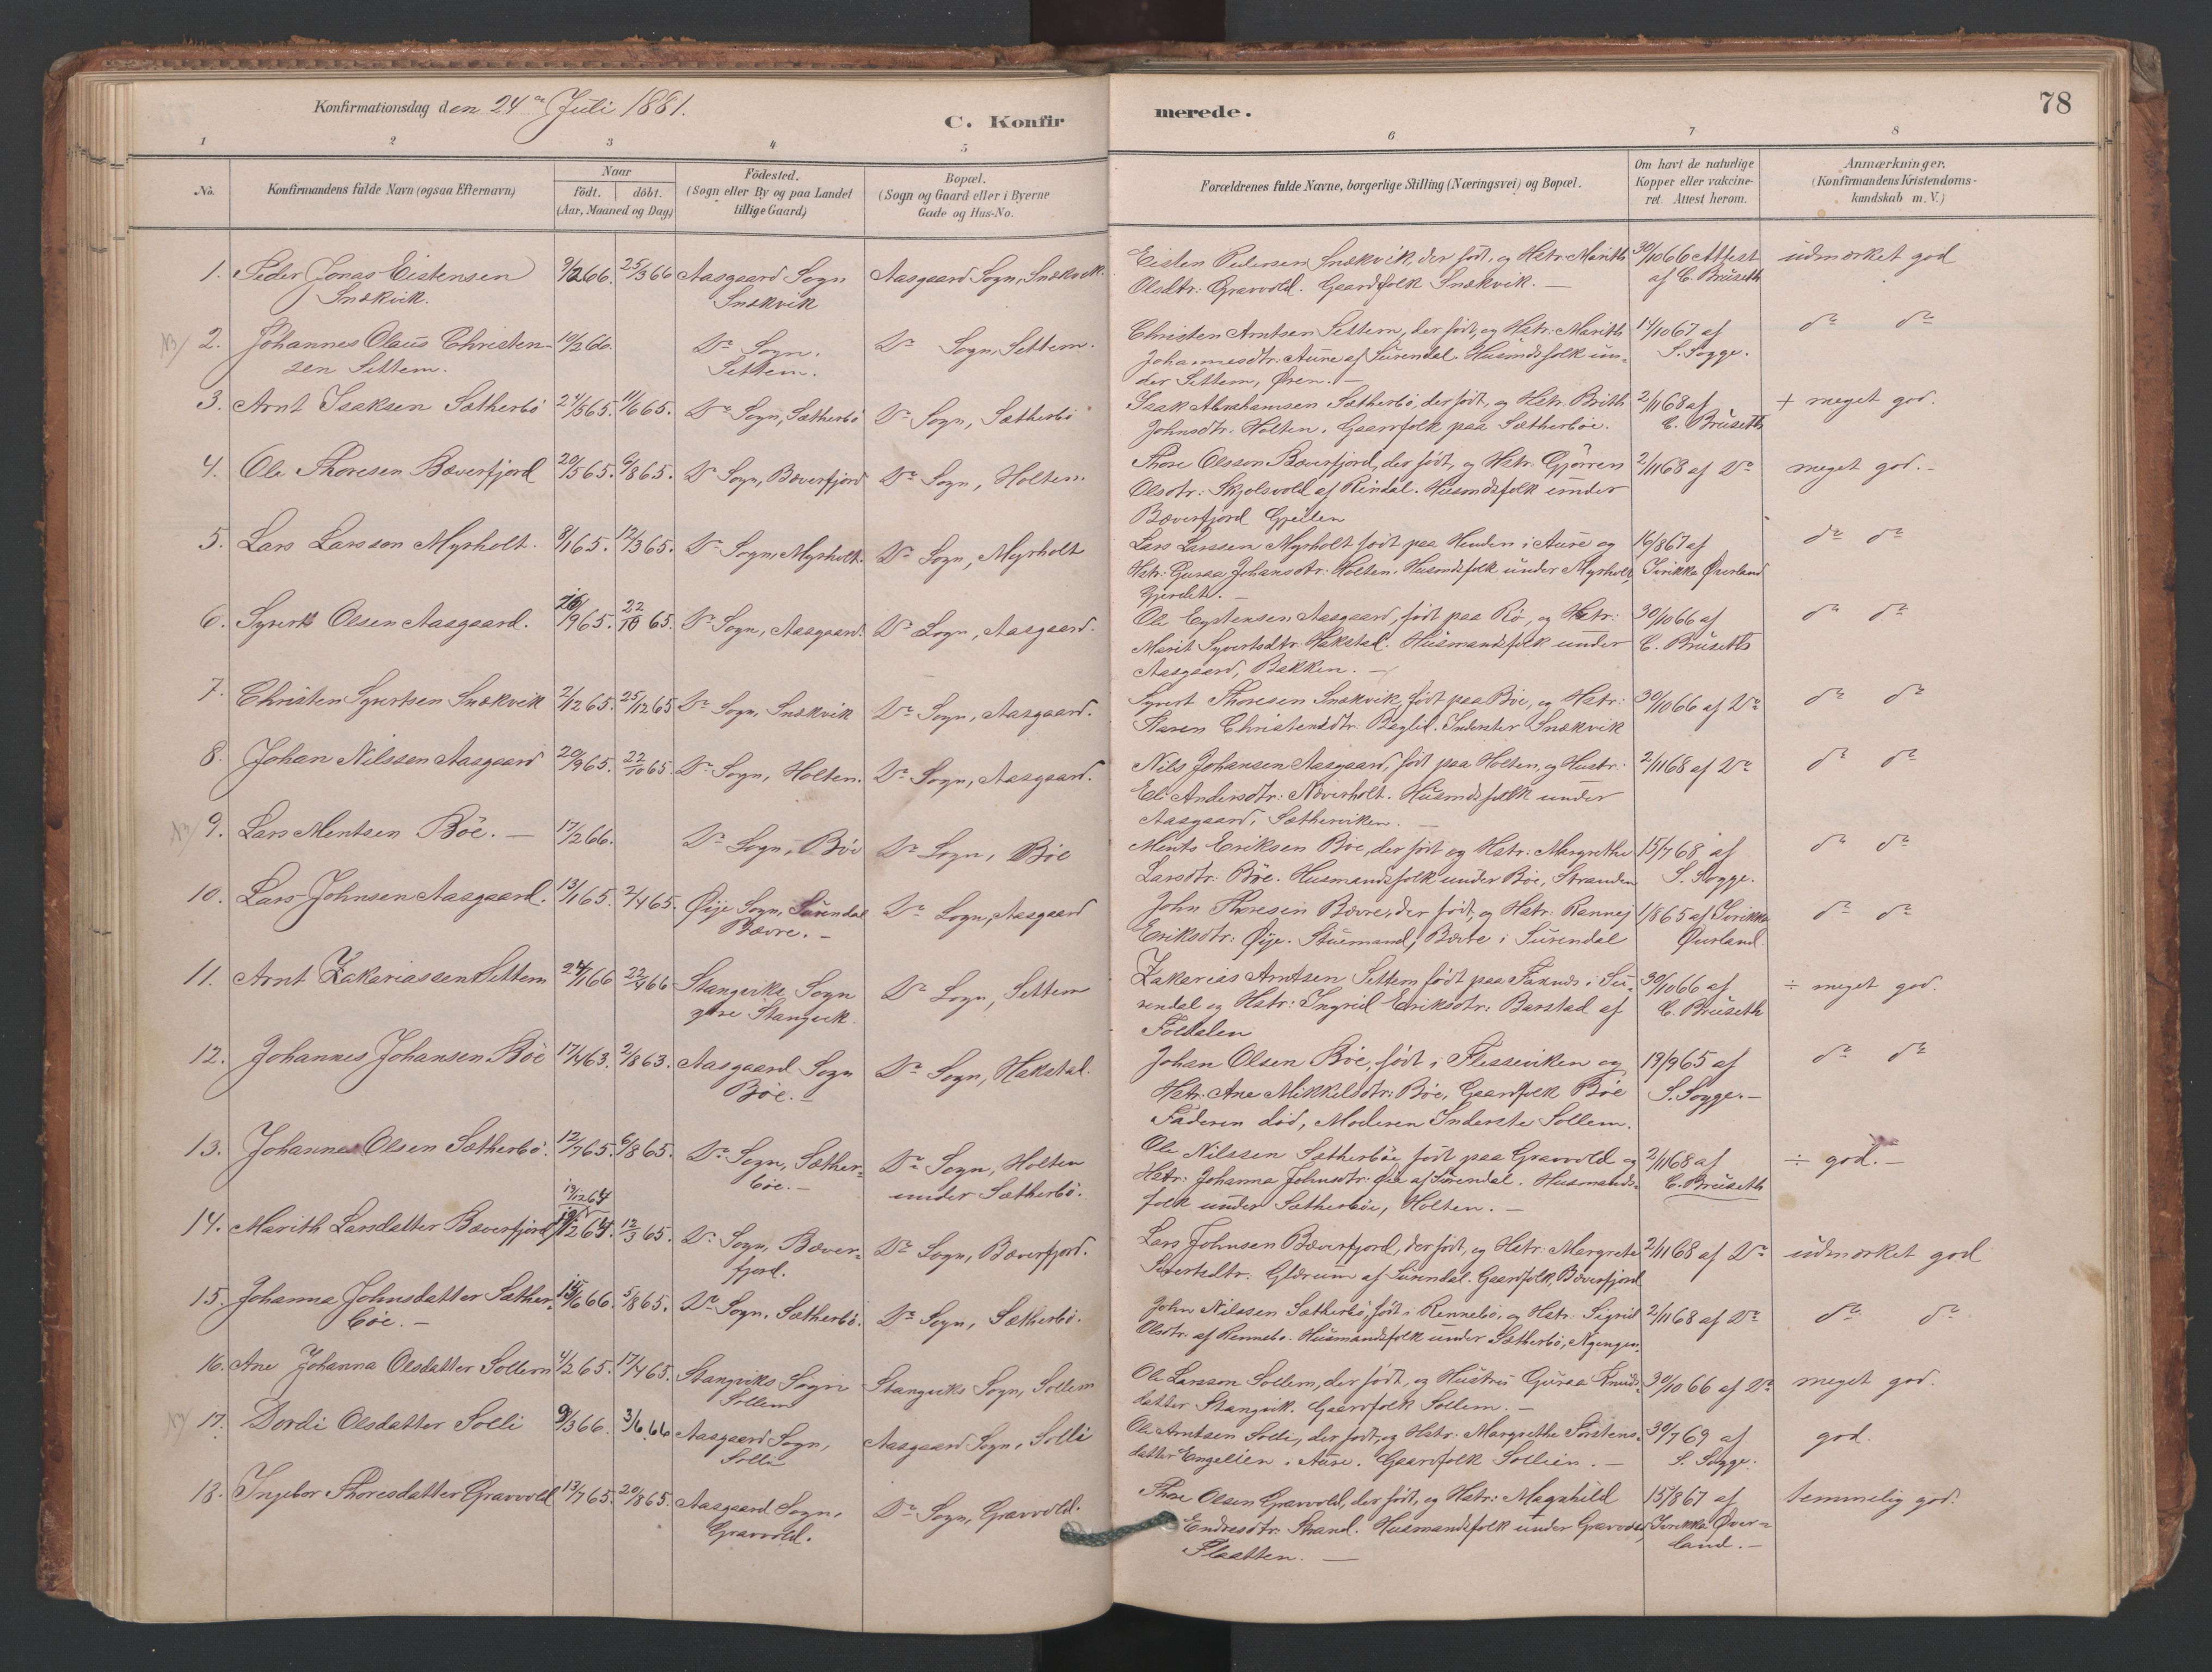 Konfirmationsdag den 24de Juli 1881.
C. Konfirmerede.
78
1 2 3 4 5 6 7 8
No. Konfirmandens fulde Navn (ogsaa Efternavn) Naar født. døbt. (Aar, Maaned og Dag) Födested. (Sogn eller By og paa Landet tillige Gaard) Bopæl. (Sogn og Gaard eller i Byerne Gade og Hus-No. Forældrenes fulde Navne, borgerlige Stilling (Næringsvei) og Bopæl. Om havt de naturlige Kopper eller vakcineret. Attest herom. Anmærkninger. (Konfirmandens Kristendomskundskab m.V.)
1. Peder Jonas Eistensen 9/2 66. 25/3 66 Aasgaard Sogn Aasgaard Sogn, Snækvik. Eisten Pedersen Snækvik, der født, og Hstr: Marith 30/10 66 Attest udmærket god
Snækvik. Snækvik Olsdtr: Gravvold. Gaardfolk Snækvik. — af C. Brüseth
2. Johannes Olaus Christen- 10/2 66. Do Sogn. Do Sogn, Settem. Christen Arntsen Settem, der født, og Hstr: Marith 14/10 67 af do do
sen Settem. Settem. Johannesdtr: Aune af Surendal. Husmdsfolk un- S. Sogge.
der Settem, Øren. —
3. Arnt Isaksen Sætherbö 24/5 65. 11/6 65. Do Sogn, Sætherbö Do Sogn, Sætherbö Isak Abrahamsen Sætherbö, der født, og Hstr. Brith 2/11 68 af + meget god.
Johnsdtr. Holten. Gaardfolk paa Sætherböe. C. Brüseth
4. Ole Thoresen Bæverfjord 20/5 65. 6/8 65. Do Sogn, Bæverfjord Do Sogn, Holten. Thore Olsson Bæverfjord, der født, og Hstr. Gjörren 2/11 68 af Do meget god. -
Olsdtr: Skjolsvold af Rindal. Husmdsfolk under
Bæverfjord
5. Lars Larsson Myrholt. 8/1 65. 12/3 65. Do Sogn, Myrholt. Do Sogn, Myrholt Lars Larssen Myrholt født paa Henden i Aure og 16/8 67 af do do
Hstr: Guraa Johansdtr: Holten. Husmdsfolk under Myrholt, Øverland
Gjerdet. —
6. Syvert Olsen Aasgaard. /9 65. 22/10 65. Do Sogn, Aasgaard. Do Sogn, Aasgaard. Ole Eystensen Aasgaard, født paa Rö, og Hstr: 30/10 66 af do do
Marit Syvertsdtr. Hakstal. Husmandsfolk under C. Brüseth
Aasgaard, Bakken. —
7. Christen Syvertsen Snækvik 2/12 65. 25/12 65 Do Sogn, Snækvik Do Sogn, Aasgaard. Syvert Thoresen Snækvik, født paa Böe, og Hstr: 30/10 66 af Do do do
Karen Christensdtr: Bæglid. Inderster Snækvik
8. Johan Nilssen Aasgaard 20/9 65. 22/10 65. Do Sogn, Holten. Do Sogn, Aasgaard. Nils Johansen Aasgaard, født paa Holten, og Hustr: 2/11 68 af Do do do
Eli Andersdtr: Næverholt. Husmdsfolk under
Aasgaard, Sætherviken. —
9. Lars Mentsen Böe. — 17/2 66. Do Sogn, Böe Do Sogn, Böe Ments Eriksen Böe, der født og Hstr. Margrethe 15/7 68 af do do
Larsdtr: Böe. Husmandsfolk under Böe, Stranden S. Sogge.
10. Lars Johnsen Aasgaard. 13/1 65. 2/4 65. Øije Sogn, Surendal Do Sogn, Aasgaard John Thoresen Bævre, der født, og Hstr. Rannej 1/8 65 af do do
Bævre. — Eriksdtr: Øije. Stuemand, Bævre i Surendal Øverland.
11. Arnt Zakariassen Settem 24/1 66 22/4 66 Stangviks Sogn Do Sogn, Settem Zakarias Arntsen Settem født paa i Su- 30/10 66 af ÷ meget god.
Stangvik. rendal og Hstr: Ingrid Eriksdtr: Barstad af C. Brüseth
Foldalen
12. Johannes Johansen Böe 17/4 63. 2/8 63. Aasgaard Sogn Do Sogn, Hakstal. Johan Olsen Böe, født i Flesseviken og 19/9 65 af do do
Böe. — Hstr: Ane Mikkelsdtr: Böe, Gaardfolk Böe S. Sogge. —
Faderen död, Moderen Inderste Sollem.
13. Johannes Olsen Sætherbö. 12/7 65. 6/8 65. Do Sogn, Sæther- Do Sogn, Holten Ole Nilssen Sætherböe født paa Gravvold og 2/11 68 af ÷ god. —
böe. — under Sætherbö. Hstr: Johanna Johnsdtr: Øie af Surendal. Husmands- C. Brüseth
19/12 64 folk under Sætherböe, Holten. —
14. Marith Larsdatter Bæverfjord 12 64. 12/3 65. Do Sogn, Bæver- Do Sogn, Bæverfjord. Lars Johnsen Bæverfjord, der født, og Hstr: Margrete 2/11 68 af Do udmærket god
fjord. Sivertsdtr. Glærum af Surendal. Gaardfolk, Bæverfjord
15. Johanna Johnsdatter Sæther- 5/8 65. Do Sogn, Sætherbö. Do Sogn, Sætherbö. John Nilssen Sætherbö, født i Rennebö, og Hstr. Sigrid 2/11 68 af Do do do
böe. — Olsdtr. af Rennebo. Husmandsfolk under Sætherbö,
16. Ane Johanna Olsdatter Sollem 4/2 65. 17/4 65. Stangviks Sogn Stangviks Sogn, Sollem Ole Larsson Sollem, der født, og Hustru Guraa Knuds- 30/10 66 af Do meget god.
Sollem datter Stangvik. Gaardfolk Sollem. —
17. Dordi Olsdatter Solli 9/3 66. 3/6 66 Aasgaard Sogn, Aasgaard Sogn, Solli Ole Arntsen Solli, der født, og Hstr. Margrethe Torstens- 30/7 69 af god.
Solli datter Engelien i Aure. Gaardfolk Sollien. — S. Sogge.
18. Ingebor Thoresdatter Gravvold 13/7 65. 20/8 65. Aasgaard Sogn, Do Sogn, Gravvold. Thore Olsen Gravvold, der født, og Hstr: Magnhild 15/8 67 af temmelig god.
Gravvold. Endresdtr: Strand. Husmandsfolk under Gravvold, Øver-
Flaatten. — land. —